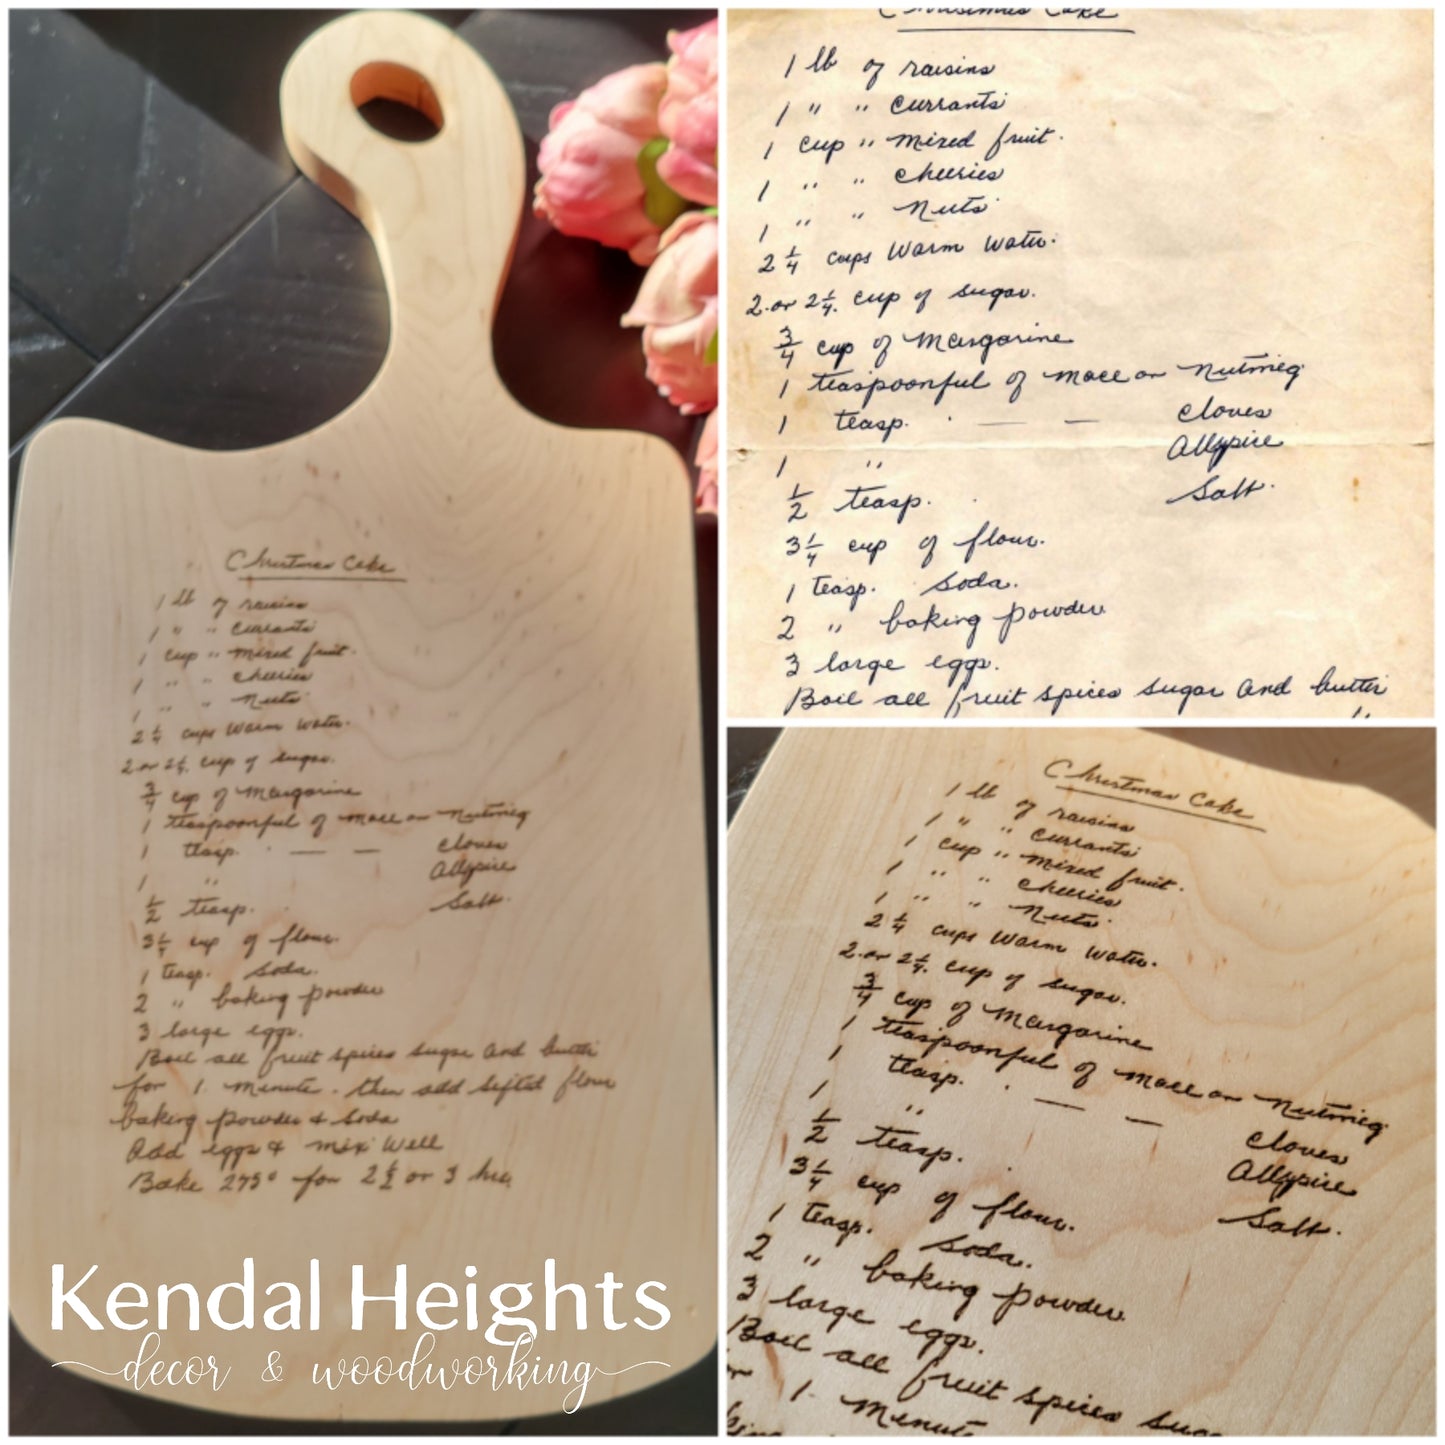 Christmas Cake
1 lb of raisins
1 " " currants
1 cup " mixed fruit.
1 " " cheeries
1 " " Nuts
2 1/4 cups Warm Water.
2 or 2 1/4. cup of sugar.
3/4 cup of Margarine
1 teaspoonful of mace or Nutmeg
1 teasp. · — — cloves
1 " Allspice
1/2 teasp. · Salt.
3 1/4 cup of flour.
1 teasp. soda.
2 " baking powder
3 large eggs.
Boil all fruit spices sugar and butter
for 1 minute. then add sifted flour
baking powder & soda
Add eggs & mix Well
Bake 275° for 2 1/2 or 3 hrs.
Kendal Heights
decor & woodworking
Christmas Cake
1 lb of raisins
1 " " currants
1 cup " mixed fruit.
1 " " cheeries
1 " " Nuts
2 1/4 cups Warm Water.
2 or 2 1/4. cup of sugar.
3/4 cup of Margarine
1 teaspoonful of mace or Nutmeg
1 teasp. · — — cloves
1 " Allspice
1/2 teasp. · Salt.
3 1/4 cup of flour.
1 teasp. soda.
2 " baking powder
3 large eggs.
Boil all fruit spices sugar and butter
Christmas Cake
1 lb of raisins
1 " " currants
1 cup " mixed fruit.
1 " " cheeries
1 " " Nuts
2 1/4 cups Warm Water.
2 or 2 1/4. cup of sugar.
3/4 cup of Margarine
1 teaspoonful of mace or Nutmeg
1 teasp. · — — cloves
1 " Allspice
1/2 teasp. · Salt.
3 1/4 cup of flour.
1 teasp. soda.
2 " baking powder
3 large eggs.
Boil all fruit spices suga
or 1 minute